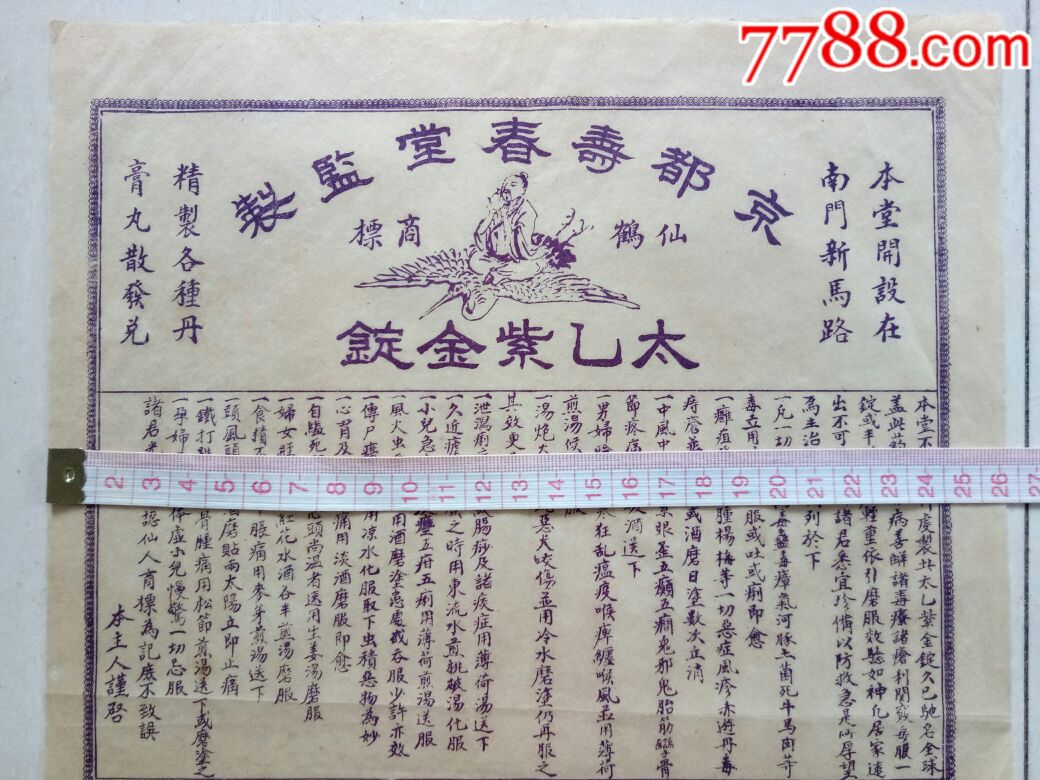 7788.com
京都壽春堂監製
仙鶴 商標
太乙紫金錠
本堂開設在
南門新馬路
精製各種丹
膏丸散發兌
本堂不
虔製此太乙紫金錠久已馳名全球
蓋此藥
病善解諸毒療諸瘡利關竅每服一
錠或半
輕重依引磨服效驗如神凡居家遠
出不可
諸君悉宜珍備以防救急是所厚望
為主治
列於下
一凡一切
毒蠱毒瘴氣河豚土菌死牛馬肉等
毒立用
服或吐或痢即愈
一癰疽
腫楊梅等一切惡症風疹赤遊丹毒
痔瘡並
或酒磨日塗數次立消
一中風中
眼歪五癲五癇鬼邪鬼胎筋攣骨
節疼痛
酒送下
一男婦
狂亂瘟疫喉痺纏喉風並用薄荷
煎湯候
服
一湯炮火
惡犬咬傷並用冷水磨塗仍再服之
其效更
一泄瀉痢
腸痧及諸疾症用薄荷湯送下
一久近瘧
之時用東流水煎桃枝湯化服
一小兒急
五疳五痢用薄荷煎湯送服
一風火虫
用酒磨塗患處或吞服少許亦效
一傳尸癆
用涼水化服取下虫積惡物為妙
一心胃及
痛用淡酒磨服即愈
一自縊死
心頭尚溫者送用生姜湯磨服
一婦女經
紅花水酒各半煎湯磨服
一食積不
脹痛用麥芽煎湯送下
一頭風頭
酒磨貼兩太陽立即止痛
一鐵打跌
骨腫痛用松節煎湯送下或磨塗之
一孕婦
体虛小兒慢驚一切忌服
諸君光
認仙人商標為記庶不致誤
本主人謹啓
2 3 4 5 6 7 8 9 10 11 12 13 14 15 16 17 18 19 20 21 22 23 24 25 26 27